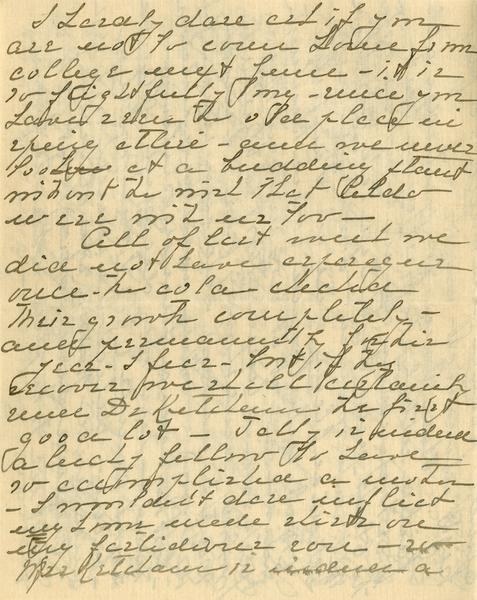 I scarcely dare ask if you
are not to come home from
college next June - it is
so frightfully long since you
have seen the old place in
spring attire - and we never
look at a budding plant
without the wish that Peldo
were with us too -
All of last week we
did not have asparagus
once - the cold checked
their growth completely -
and permanently for this
year - I fear - but if they
recover we shall certainly
send Dr Ketcham the first
good lot - Jelly is indeed
a lucky fellow to have
so accomplished a mother
- I wouldn't dare inflict
my home made shirts on
my fastidious son -
Mrs Ketcham is indeed a